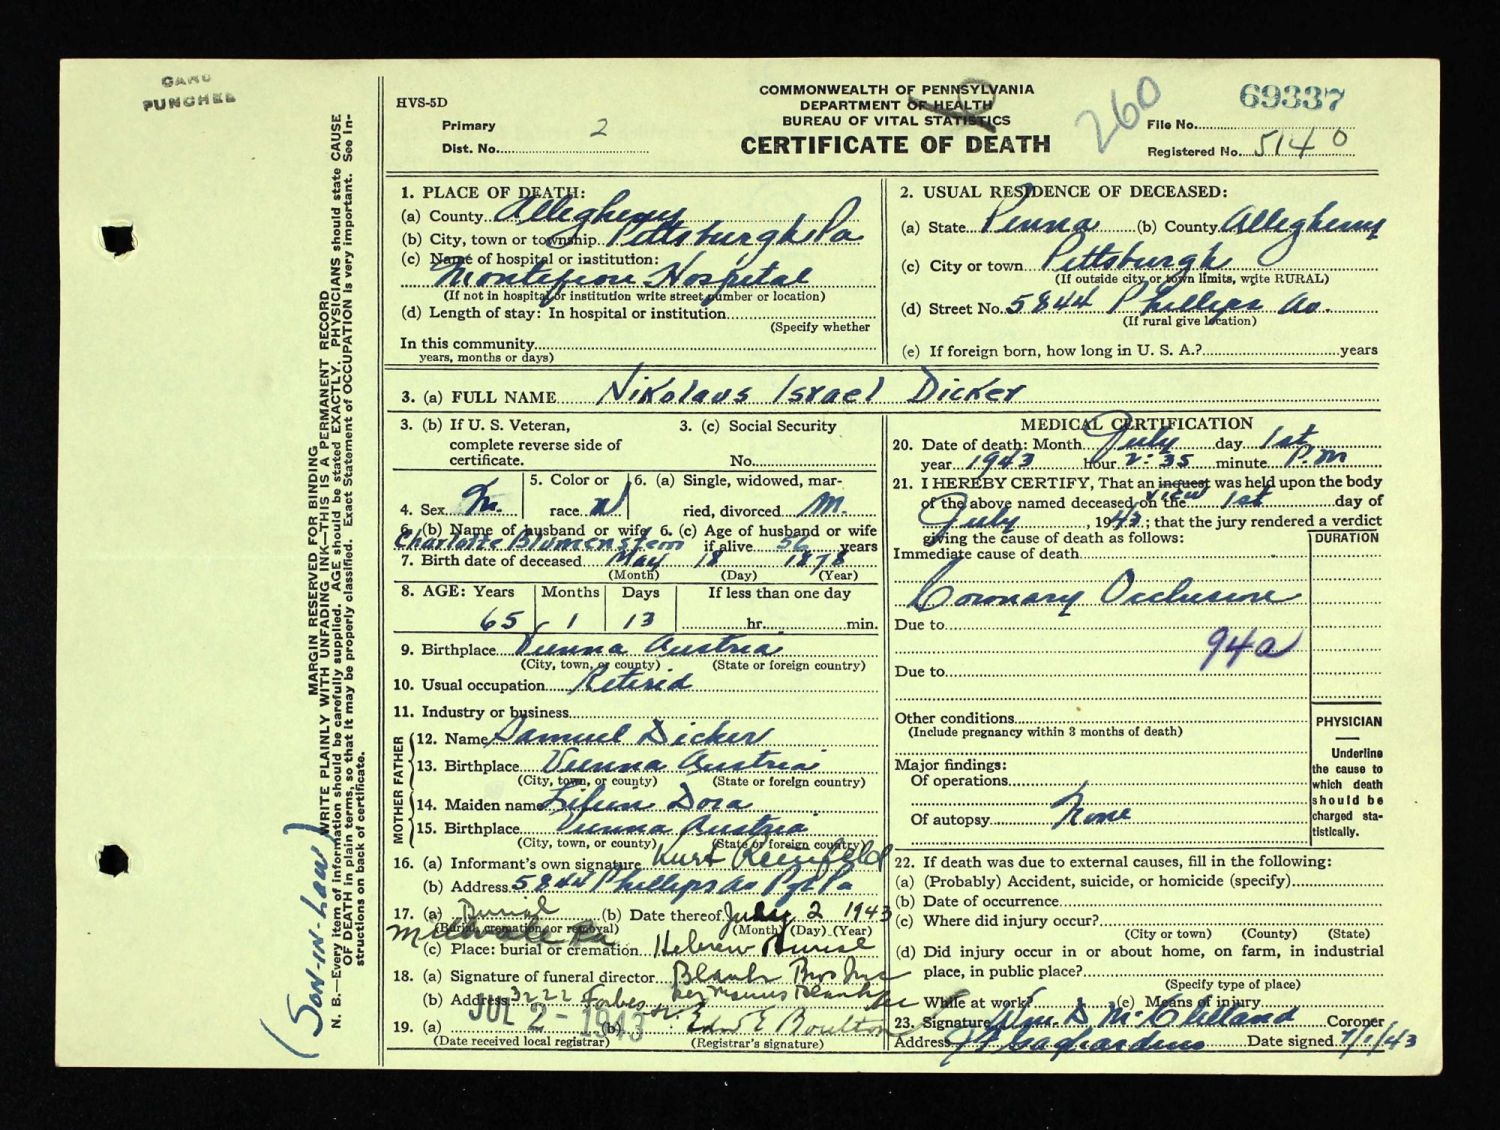 CARD
PUNCHED
HVS-5D
COMMONWEALTH OF PENNSYLVANIA
DEPARTMENT OF HEALTH
BUREAU OF VITAL STATISTICS
CERTIFICATE OF DEATH
Primary
Dist. No. 2
260
69337
File No.
Registered No. 5140
1. PLACE OF DEATH:
(a) County Allegheny
(b) City, town or township Pittsburgh Pa
(c) Name of hospital or institution:
Montefiore Hospital
(If not in hospital or institution write street number or location)
(d) Length of stay: In hospital or institution
(Specify whether
In this community
years, months or days)
2. USUAL RESIDENCE OF DECEASED:
(a) State Penna (b) County Allegheny
(c) City or town Pittsburgh
(If outside city or town limits, write RURAL)
(d) Street No. 5844 Phillips Av.
(If rural give location)
(e) If foreign born, how long in U. S. A.? years
3. (a) FULL NAME Nikolaus Israel Dicker
3. (b) If U. S. Veteran,
complete reverse side of
certificate.
3. (c) Social Security
No.
4. Sex M.
5. Color or
race W
6. (a) Single, widowed, mar-
ried, divorced M.
6. (b) Name of husband or wife 6. (c) Age of husband or wife
Charlotte Blumenstein if alive 56 years
7. Birth date of deceased May 18 1878
(Month) (Day) (Year)
8. AGE: Years Months Days If less than one day
65 1 13 hr. min.
9. Birthplace Vienna Austria
(City, town, or county) (State or foreign country)
10. Usual occupation Retired
11. Industry or business
FATHER
12. Name Samuel Dicker
13. Birthplace Vienna Austria
(City, town, or county) (State or foreign country)
MOTHER
14. Maiden name Dora
15. Birthplace Vienna Austria
(City, town, or county) (State or foreign country)
16. (a) Informant's own signature Kurt
(b) Address 5844 Phillips Av Pgh Pa
17. (a) Burial (b) Date thereof July 2 1943
(Burial, cremation or removal) (Month) (Day) (Year)
Millvale Pa
(c) Place: burial or cremation Hebrew
18. (a) Signature of funeral director Blank Bros Inc
(b) Address 3222 Forbes St.
19. (a) JUL 2 - 1943 (b) Edw E Boulton
(Date received local registrar) (Registrar's signature)
MEDICAL CERTIFICATION
20. Date of death: Month July day 1st
year 1943 hour 2:35 minute P.M
21. I HEREBY CERTIFY, That an inquest was held upon the body
view
of the above named deceased on the 1st day of
July, 1943; that the jury rendered a verdict
giving the cause of death as follows:
DURATION
Immediate cause of death
Coronary Occlusion
Due to
94a
Due to
Other conditions
(Include pregnancy within 3 months of death)
Major findings:
Of operations
Of autopsy None
PHYSICIAN
Underline
the cause to
which death
should be
charged sta-
tistically.
22. If death was due to external causes, fill in the following:
(a) (Probably) Accident, suicide, or homicide (specify)
(b) Date of occurrence
(c) Where did injury occur?
(City or town) (County) (State)
(d) Did injury occur in or about home, on farm, in industrial
place, in public place?
(Specify type of place)
While at work? (e) Means of injury
23. Signature Wm. D McClelland Coroner
Address Date signed 7/1/43
MARGIN RESERVED FOR BINDING
WRITE PLAINLY WITH UNFADING INK—THIS IS A PERMANENT RECORD
N. B.—Every item of information should be carefully supplied. AGE should be stated EXACTLY. PHYSICIANS should state CAUSE
OF DEATH in plain terms, so that it may be properly classified. Exact Statement of OCCUPATION is very important. See In-
structions on back of certificate.
(SON-IN-LAW)